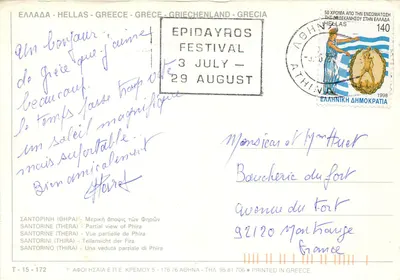 ΕΛΛΑΔΑ - HELLAS - GREECE - GRÈCE - GRIECHENLAND - GRECIA
EPIDAYROS
FESTIVAL
3 JULY —
29 AUGUST
ΑΘΗΝΑ
ATHINA
50 ΧΡΟΝΙΑ ΑΠΟ ΤΗΝ ΕΝΣΩΜΑΤΩΣΗ
ΤΗΣ ΔΩΔΕΚΑΝΗΣΟΥ ΣΤΗΝ ΕΛΛΑΔΑ
HELLAS
140
1998
ΕΛΛΗΝΙΚΗ ΔΗΜΟΚΡΑΤΙΑ
Un bonjour
de Grèce que j'aime
beaucoup.
le temps passe trop vite
un soleil magnifique
mais supportable.
Bien amicalement
Monsieur et Mme Huet
Boucherie du fort
avenue du Fort
92120 Montrouge
France
ΣΑΝΤΟΡΙΝΗ (ΘΗΡΑ) - Μερική άποψις τών Φηρών
SANTORINI (THERA) - Partial view of Phira
SANTORIN (THERA) - Vue partielle de Phira
SANTORINI (THERA) - Teilansicht der Fira
SANTORINO (THERA) - Una veduta parziale di Phira
T - 15 - 172
PRINTED IN GREECE